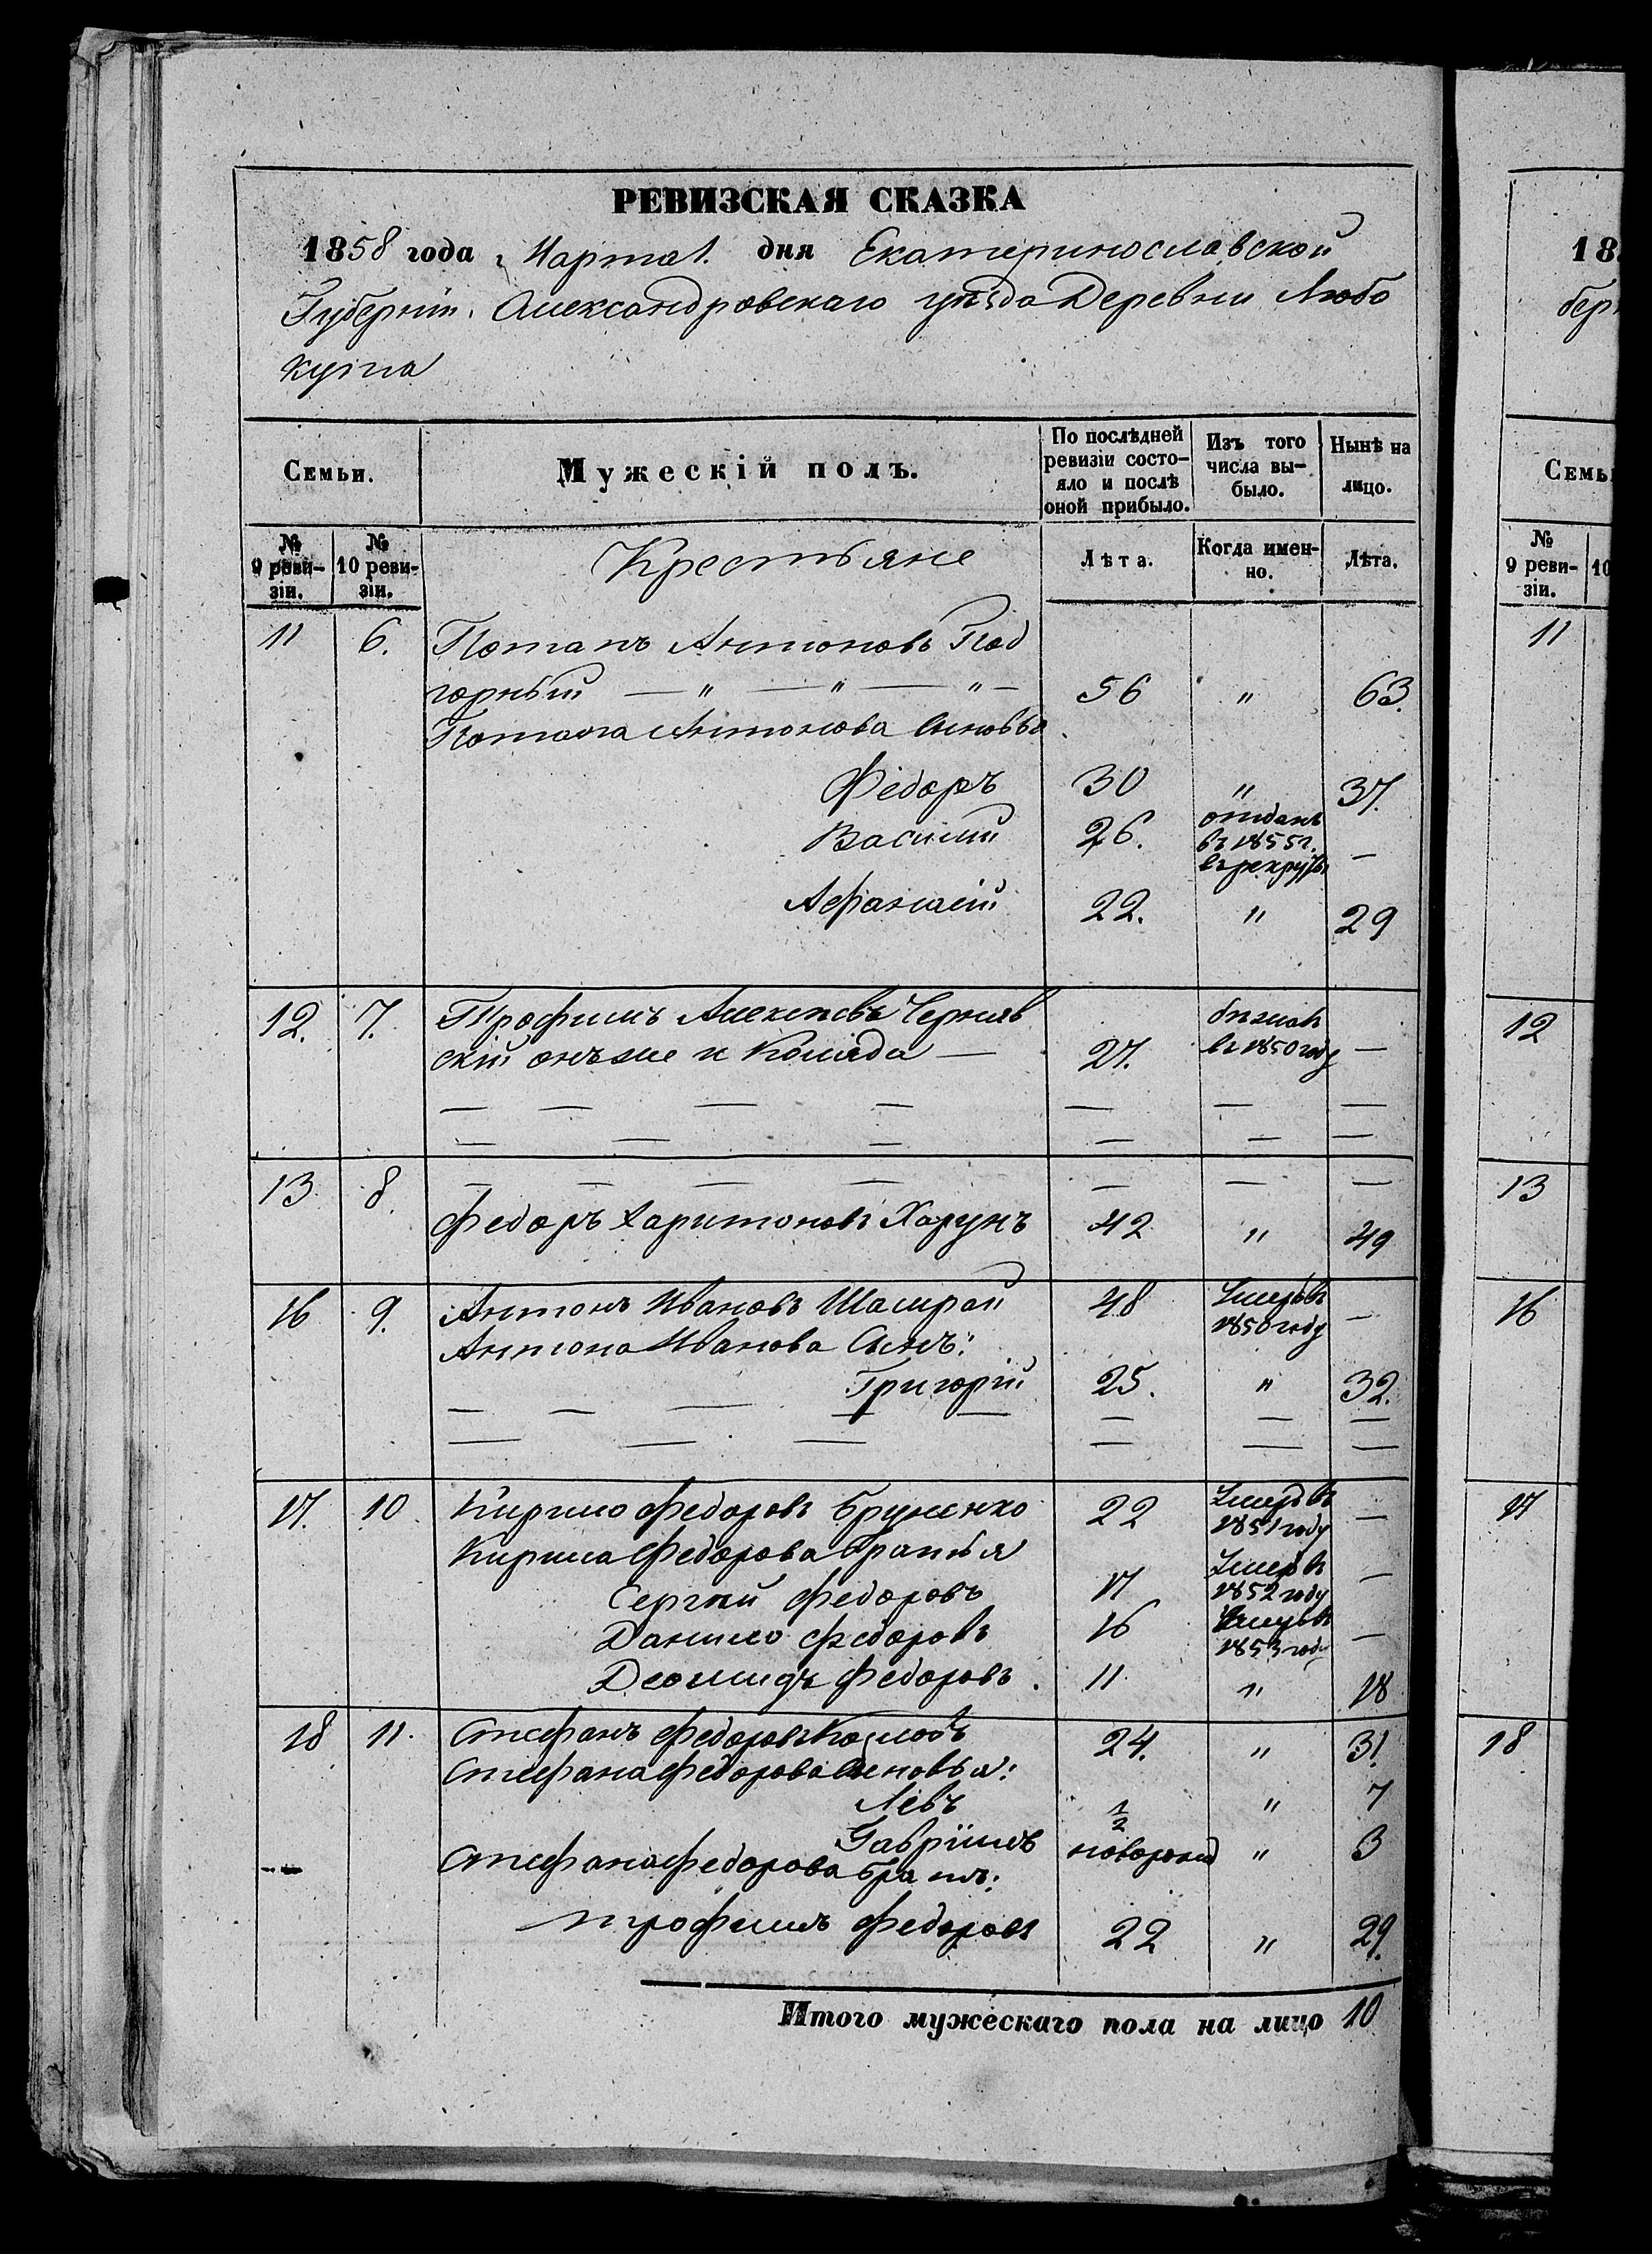 РЕВИЗСКАЯ СКАЗКА
1858 года Марта 1. дня Екатеринославской
Губерніи. Александровскаго уѣзда Деревни Любо
Семьи.
Мужескій полъ.
По послѣдней ревизіи состо-яло и послѣ оной прибыло.
Изъ того числа вы-было.
Нынѣ на лицо.
№ 9 реви-зіи.
№ 10 реви-зіи.
Крестьяне
Лѣта.
Когда имен-но.
Лѣта.
11 6. Потапъ Антоновъ Под
горный — " — " — " — 56 " 63.
Потапа Антонова сыновья
Федоръ 30 " 37.
Василий 26. отданъ въ 1855 г. въ рекруты —
Афанасій 22. " 29
12. 7. Трофимъ Алексѣевъ Черняв
скій онъ же и Коляда — 27. бѣжалъ въ 1850 году —
— — — — — — —
— — — — — —
13 8. — — — — — — —
Федоръ Харитоновъ Харунъ 42 " 49
16 9. Антонъ Ивановъ Шамрай 48 Умеръ въ 1850 году —
Антона Иванова Сынъ:
Григорій 25. " 32.
— — — — — — — —
— — — — — —
17. 10. Кирило Федоровъ 22 Умеръ въ 1851 году —
Кирила Федорова Братья
Сергѣй Федоровъ 17 Умеръ въ 1852 году —
Данило Федоровъ 16 Умеръ въ 1853 году —
Деомидъ Федоровъ. 11 " 18
18 11. Стефанъ Федоровъ 24. " 31
Стефана Федорова Сыновья:
Левъ 1/2 " 7
Гавріилъ новорожд " 3
Стефана Федорова братъ:
Трофимъ Федоровъ 22 " 29.
Итого мужескаго пола на лицо 10
18
бер
Семь
№ 9 реви-зіи.
10
11
12
13
16
17
18